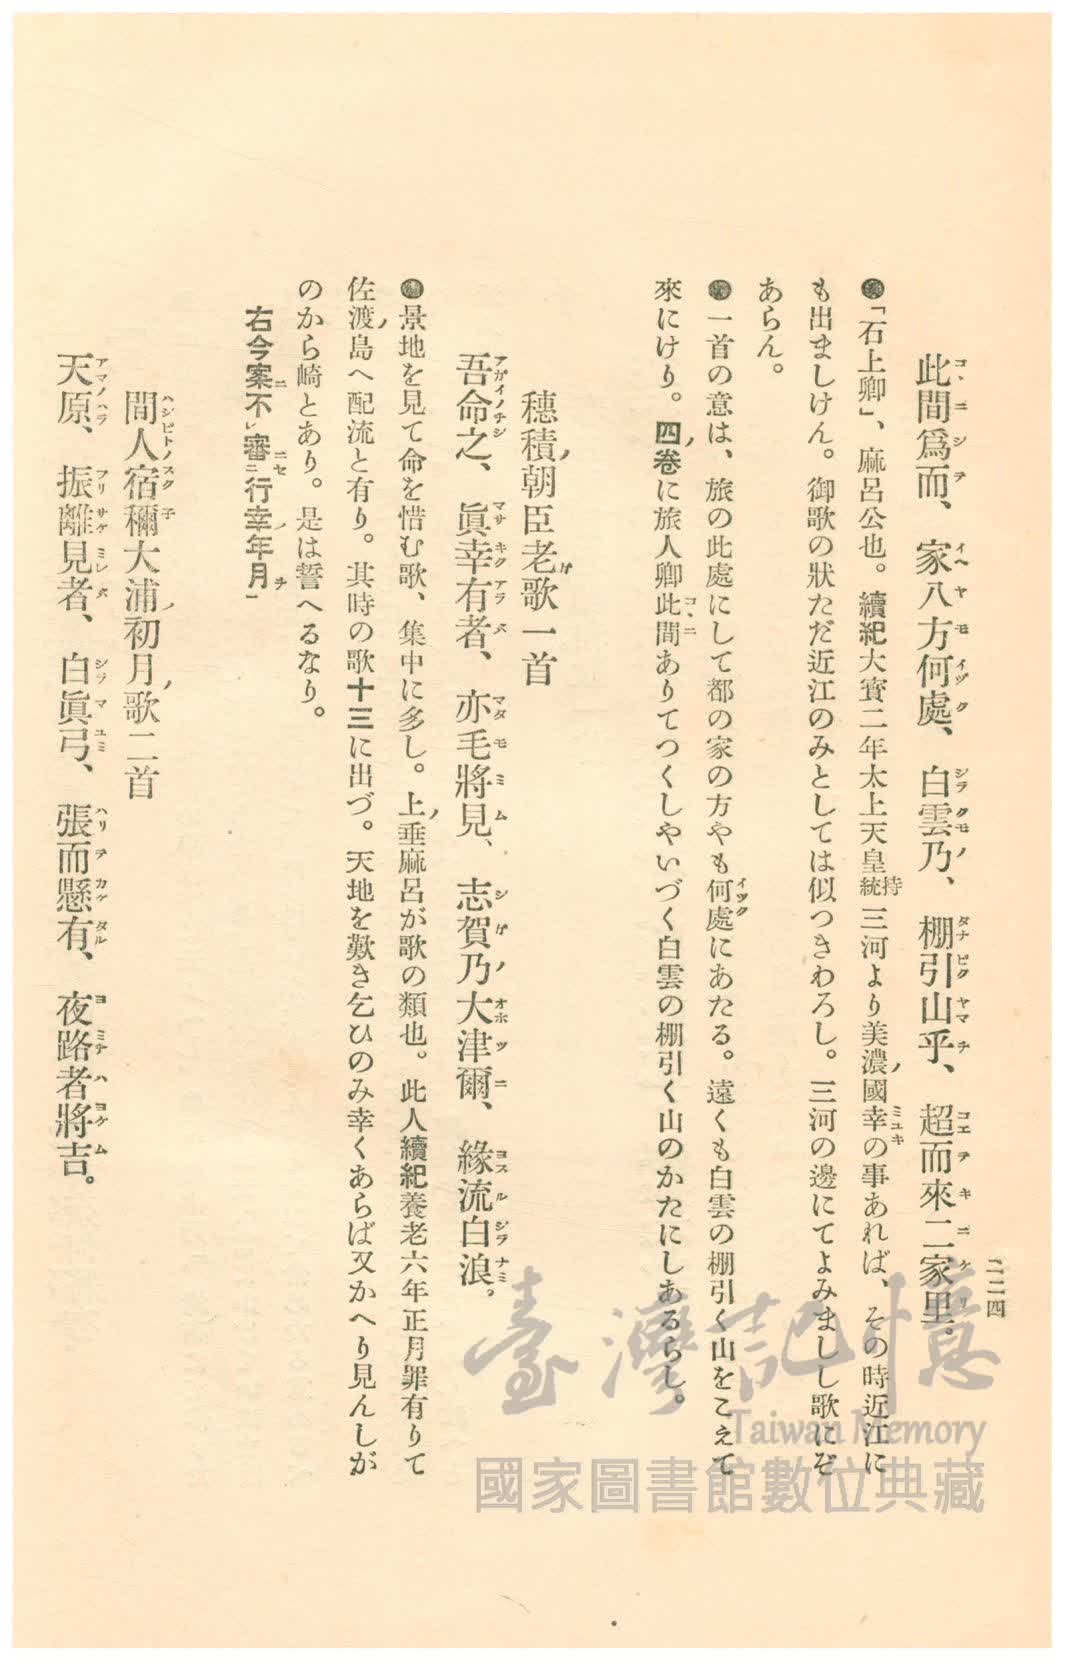 二二四
此間爲而、家八方何處、白雲乃、棚引山乎、超而來二家里。
●「石上卿」、麻呂公也。續紀大寳二年太上天皇持統三河より美濃ノ國幸の事あれば、その時近江に
も出ましけん。御歌の狀ただ近江のみとしては似つきわろし。三河の邊にてよみましし歌にぞ
あらん。
●一首の意は、旅の此處にして都の家の方やも何處にあたる。遠くも白雲の棚引く山をこえて
來にけり。四ノ卷に旅人卿此間ありてつくしやいづく白雲の棚引く山のかたにしあるらし。
穗積ノ朝臣老歌一首
吾命之、眞幸有者、亦毛將見、志賀乃大津爾、緣流白浪。
●景地を見て命を惜む歌、集中に多し。上ノ垂麻呂が歌の類也。此人續紀養老六年正月罪有りて
佐渡ノ島へ配流と有り。其時の歌十三に出づ。天地を歎き乞ひのみ幸くあらば又かへり見んしが
のから崎とあり。是は誓へるなり。
右今案不レ審ニ行幸年月一
間人宿禰大浦初月歌二首
天原、振離見者、白眞弓、張而懸有、夜路者將吉。
臺灣記憶
Taiwan Memory
國家圖書館數位典藏